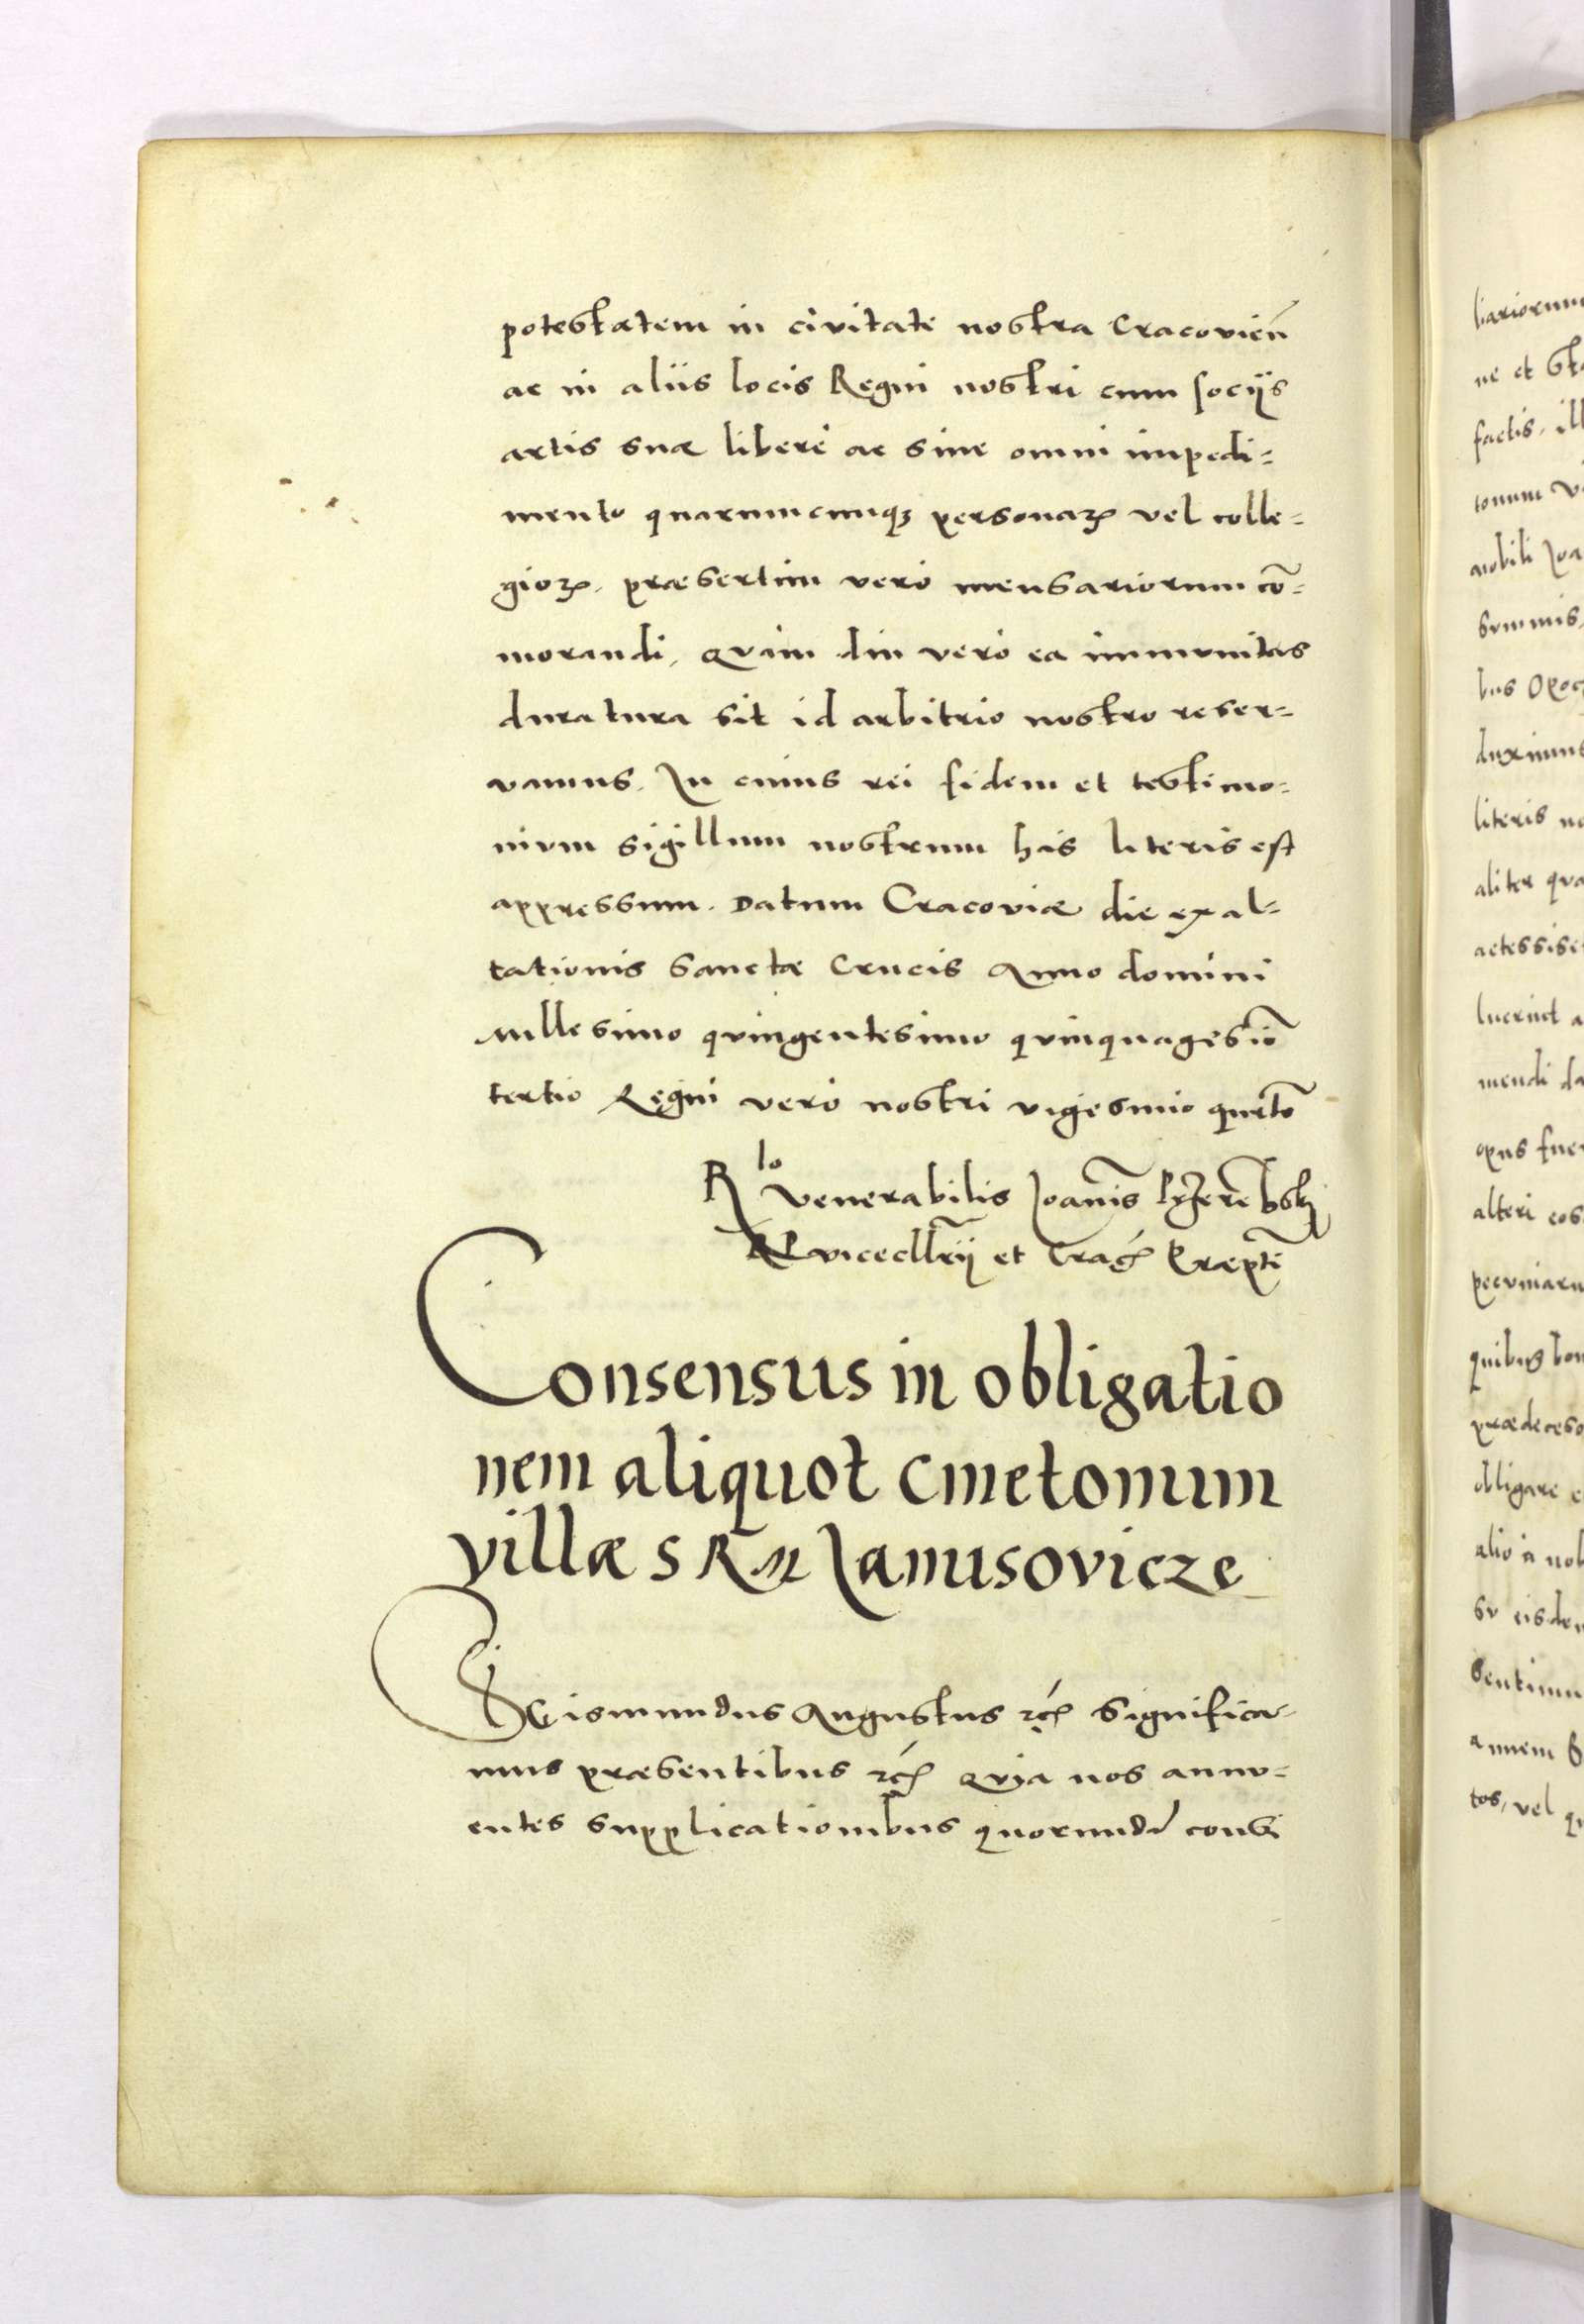 potestatem in civitate nostra Cracovien̄
ac in aliis locis Regni nostri cum sociis
artis suæ liberè ac sine omni impedi=
mento quarumcumqȝ personaꝝ vel colle=
gioꝝ. præsertim verò mensariorum cō=
morandi, Quàm diu verò ea immunitas
duratura sit id arbitrio nostro reser=
vamus. In cuius rei fidem et testimo=
nium sigillum nostrum his literis est
appressum. Datum Cracoviæ die exal=
tationis Sanctæ Crucis Anno domini
Millesimo quingentesimo quinquagesiō
tertio Regni verò nostri vigesimo quarto
Rlo venerabilis Joan̄is Przerēbski
R P vicecllrij et Crac̄ Præpti
Consensus in obligatio
nem aliquot cmetonum
villæ S R M Janusovicze
Sigismundus Augustus rc̄ Significa=
mus præsentibus rc̄ Quia nos annu=
entes supplicationibus quorundā consi
liariorum
ne et
factis. ill
tonum
nobili Joa
summis,
bus Opoc
duximus
literis no
aliter qua
actessise
lucrint a
mendi da
opus fuer
alteri eos
pecuniaru
quibus bon
prædeceso
obligare e
alio à nob
su eisdem
sentimu
annem
tos, vel qu